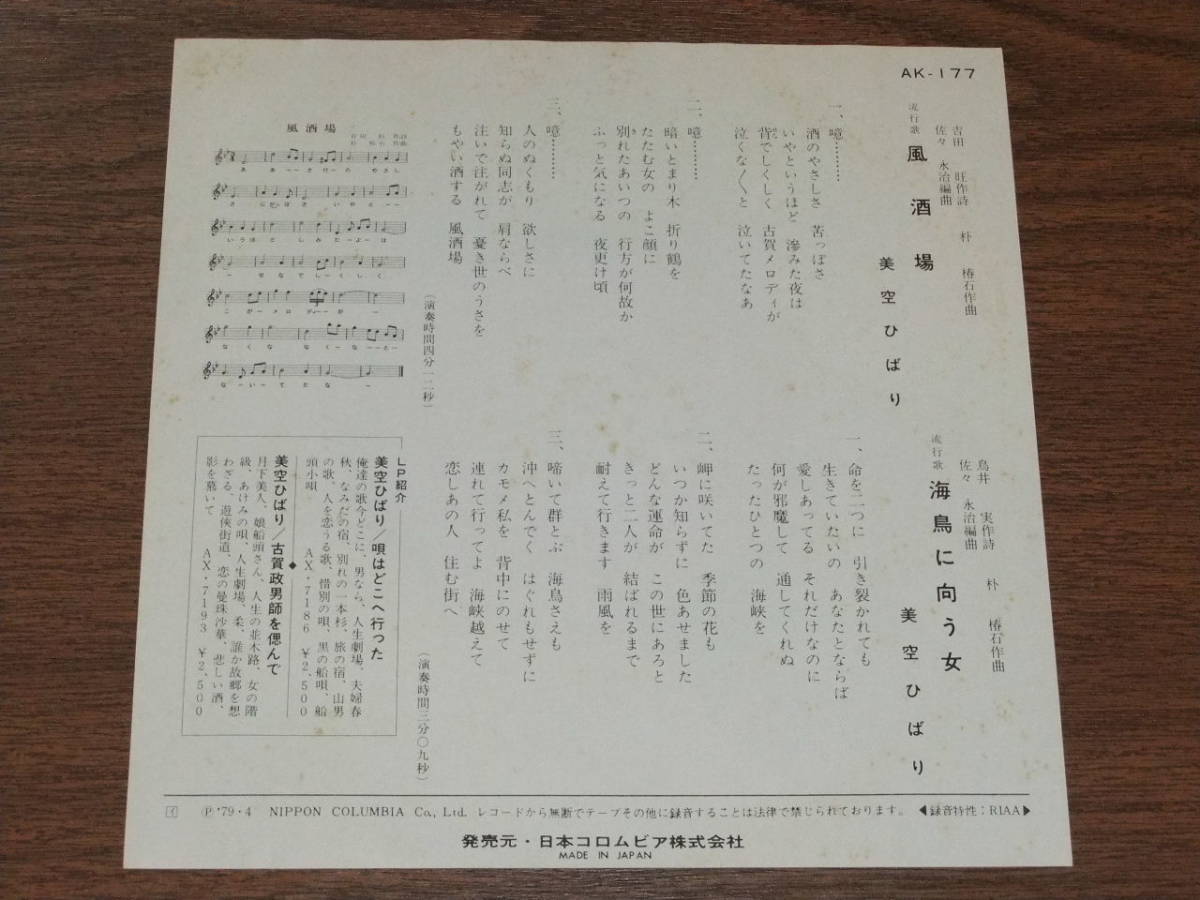 AK-177
流行歌 風酒場
吉田 旺作詩
佐々 永治編曲
朴 椿石作曲
美空ひばり
一、噫………
酒のやさしさ 苦っぽさ
いやというほど 滲みた夜は
背でしくしく 古賀メロディが
泣くな〱と 泣いてたなあ
二、噫………
暗いとまり木 折り鶴を
たたむ女の よこ顔に
別れたあいつの 行方が何故か
ふっと気になる 夜更け頃
三、噫………
人のぬくもり 欲しさに
知らぬ同志が、肩ならべ
注いで注がれて 憂き世のうさを
もやい酒する 風酒場
(演奏時間四分一二秒)
風酒場
流行歌 海鳥に向う女
鳥井 実作詩
佐々 永治編曲
朴 椿石作曲
美空ひばり
一、命を二つに 引き裂かれても
生きていたいの あなたとならば
愛しあってる それだけなのに
何が邪魔して 通してくれぬ
たったひとつの 海峡を
二、岬に咲いてた 季節の花も
いつか知らずに 色あせました
どんな運命が この世にあろと
きっと二人が 結ばれるまで
耐えて行きます 雨風を
三、啼いて群とぶ 海鳥さえも
沖へとんでく はぐれもせずに
カモメ私を 背中にのせて
連れて行ってよ 海峡越えて
恋しあの人 住む街へ
(演奏時間三分〇九秒)
LP紹介
美空ひばり/唄はどこへ行った
俺達の歌今どこに、男なら、人生劇場、夫婦春
秋、なみだの宿、別れの一本杉、旅の宿、山男
の歌、人を恋うる歌、惜別の唄、黒の船唄、船
頭小唄 AX・7186 ¥2,500
◆
美空ひばり/古賀政男師を偲んで
月下美人、娘船頭さん、人生の並木路、女の階
級、あけみの唄、人生劇場、柔、誰か故郷を想
わざる、遊侠街道、恋の曼珠沙華、悲しい酒、
影を慕いて AX・7193 ¥2,500
Ⓟ'79・4 NIPPON COLUMBIA Co., Ltd. レコードから無断でテープその他に録音することは法律で禁じられております。 ◀録音特性:RIAA▶
発売元・日本コロムビア株式会社
MADE IN JAPAN